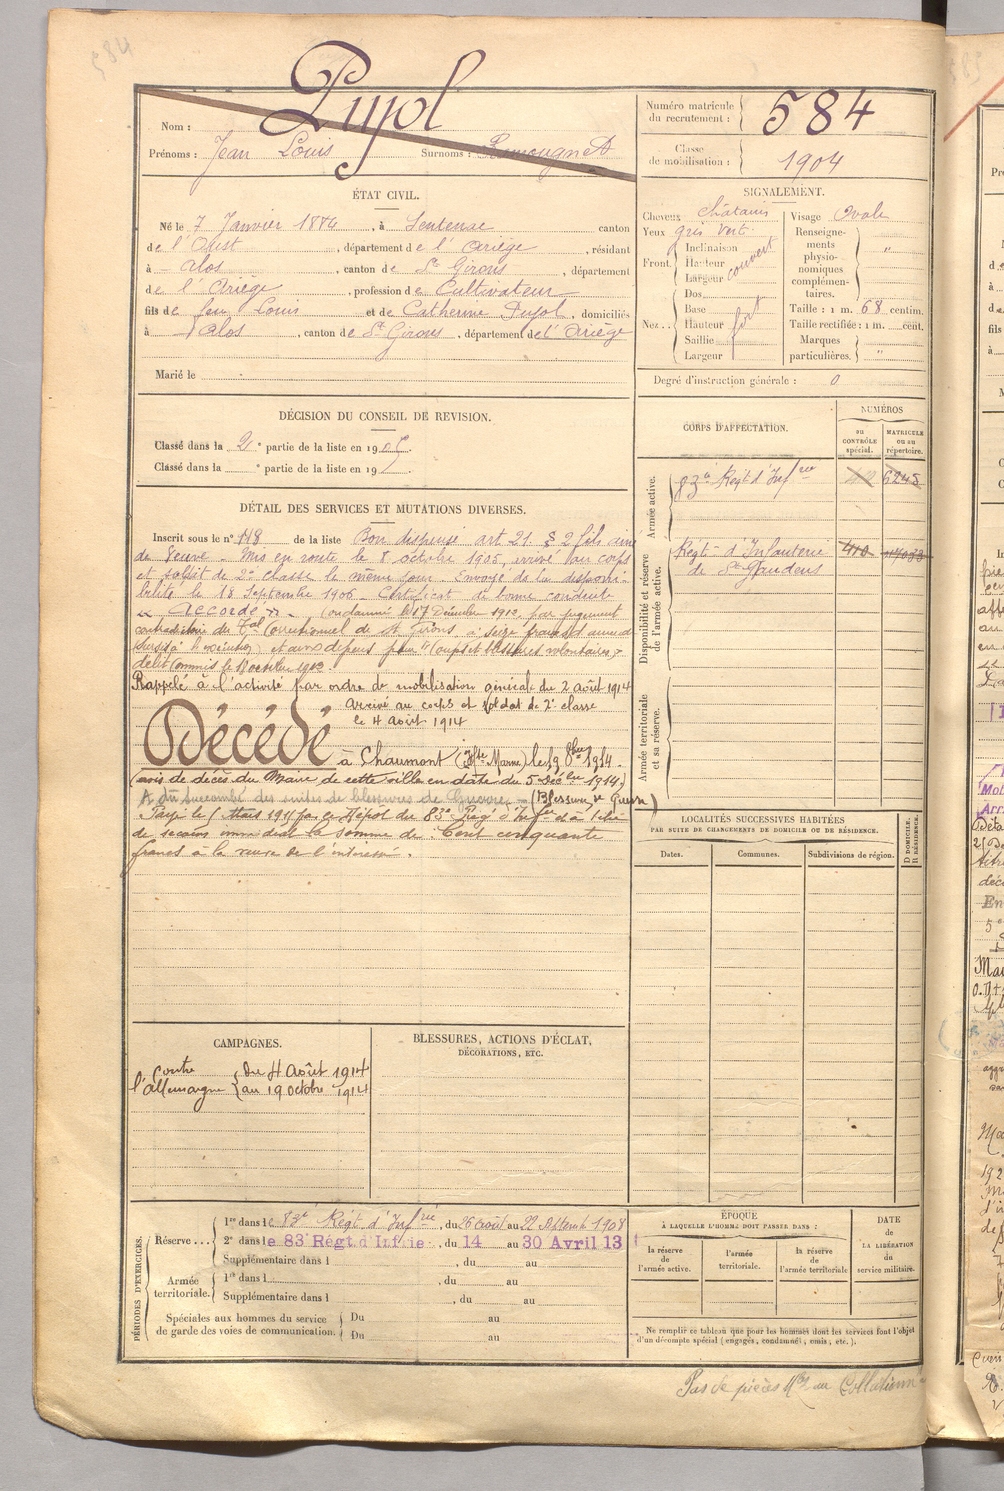 584
Nom : Pujol
Prénoms : Jean Louis Surnoms :
Numéro matricule du recrutement : 584
Classe de mobilisation : 1904
ÉTAT CIVIL.
Né le 7 Janvier 1884, à Sentenac canton
de l'Oust, département de l'Ariège, résidant
à Alos, canton de St Girons, département
de l'Ariège, profession de Cultivateur
fils de feu Louis et de Catherine Pujol, domiciliés
à Alos, canton de St Girons, département de l'Ariège
Marié le
SIGNALEMENT.
Cheveux châtains Visage Ovale
Yeux gris vert.
Front. Inclinaison Hauteur Largeur couvert
Nez. Dos Base Hauteur Saillie Largeur fort
Renseignements physionomiques complémentaires. "
Taille : 1 m. 68 centim.
Taille rectifiée : 1 m. cent.
Marques particulières. "
Degré d'instruction générale : 0
DÉCISION DU CONSEIL DE REVISION.
Classé dans la 2e partie de la liste en 1905
Classé dans la e partie de la liste en 19
CORPS D'AFFECTATION.
NUMÉROS
au CONTRÔLE spécial.
MATRICULE ou au répertoire.
Armée active.
83e Régt d'Infrie 6245
Disponibilité et réserve de l'armée active.
Régt d'Infanterie 410
de St Gaudens
Armée territoriale et sa réserve.
DÉTAIL DES SERVICES ET MUTATIONS DIVERSES.
Inscrit sous le n° 118 de la liste Bon dispensé art. 21 § 2 fils aîné
de veuve. Mis en route le 8 octobre 1905, arrivé au corps
et soldat de 2e classe le même jour. Envoyé ds la disponi-
bilité le 18 Septembre 1906. Certificat de bonne conduite
"Accordé". Condamné le 17 Décembre 1912, par jugement
contradictoire du Tal Correctionnel de St Girons, à seize francs d'amende
(sursis à l'exécution) et aux dépens pour "Coups et blessures volontaires"
délit commis le
Rappelé à l'activité par ordre de mobilisation générale du 2 août 1914
Arrivé au corps et soldat de 2e classe
le 4 Août 1914
Décédé à Chaumont (Hte Marne) le 19 8bre 1914.
(avis de décès du Maire de cette ville en date du 5 Décbre 1914)
A dû succomber des suites de blessures de Guerre (Blessure de Guerre)
Payé le Mars 1915 par le Dépôt du 83e Régt d'Infie à titre
de secours immédiat la somme de Cent cinquante
francs à la veuve de l'intéressé.
LOCALITÉS SUCCESSIVES HABITÉES
PAR SUITE DE CHANGEMENTS DE DOMICILE OU DE RÉSIDENCE.
Dates. Communes. Subdivisions de région. D DOMICILE. R RÉSIDENCE.
CAMPAGNES.
Contre l'Allemagne du 4 Août 1914
au 19 octobre 1914
BLESSURES, ACTIONS D'ÉCLAT,
DÉCORATIONS, ETC.
PÉRIODES D'EXERCICES.
Réserve... 1re dans le 83e Régt d'Infrie, du 26 août au 22 Septemb 1908
2e dans le 83e Régt. d'Infrie, du 14 au 30 Avril 13
Supplémentaire dans l , du au
Armée territoriale. 1re dans l , du au
Supplémentaire dans l , du au
Spéciales aux hommes du service de garde des voies de communication. Du au
Du au
ÉPOQUE
À LAQUELLE L'HOMME DOIT PASSER DANS :
la réserve de l'armée active.
l'armée territoriale.
la réserve de l'armée territoriale
DATE DE LA LIBÉRATION du service militaire.
Ne remplir ce tableau que pour les hommes dont les services font l'objet
d'un décompte spécial (engagés, condamnés, omis, etc.).
Pas de pièces